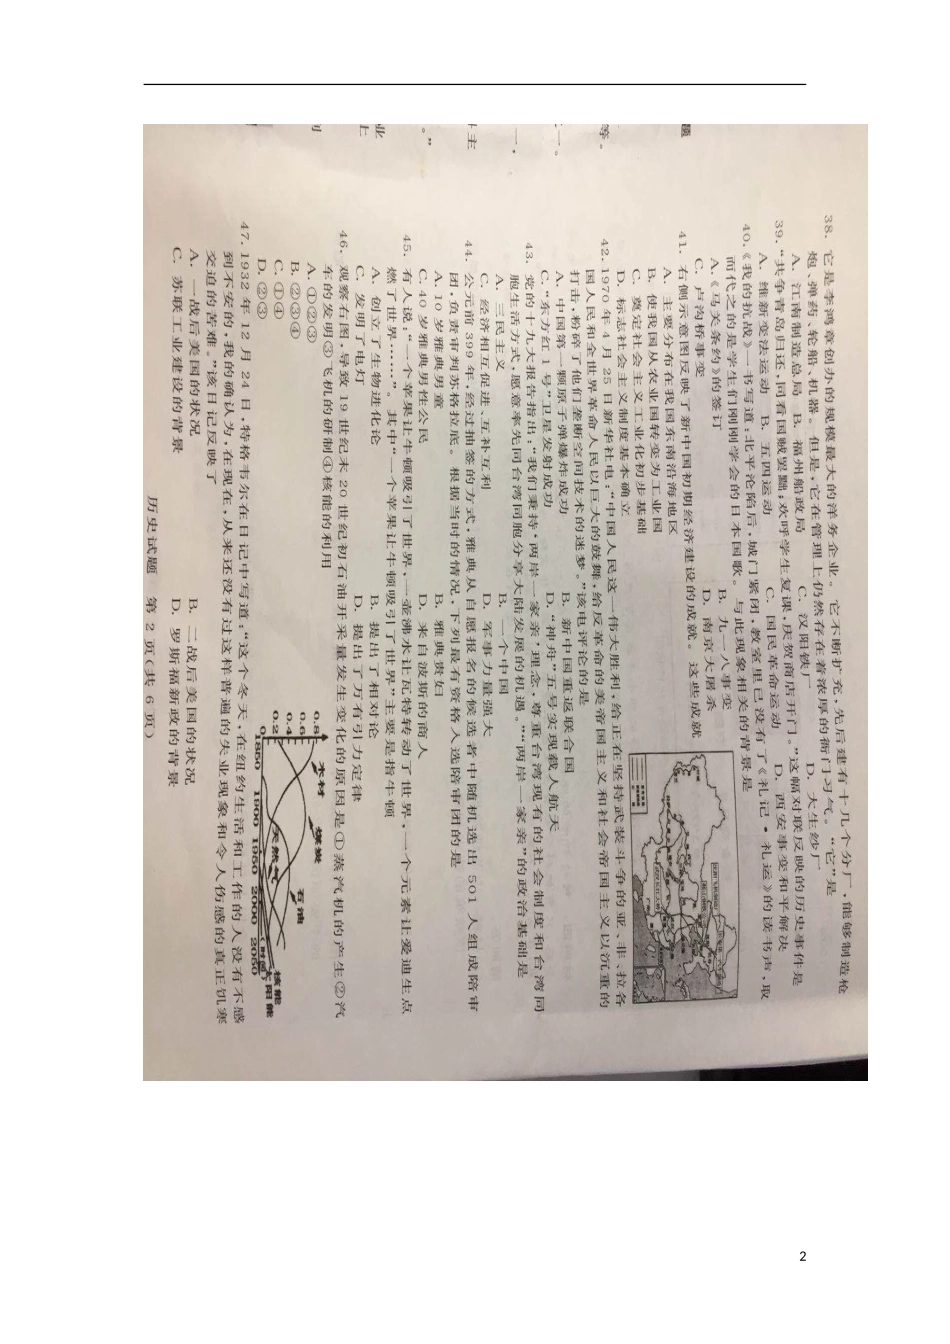 38. 它是李鸿章创办的规模最大的洋务企业。它不断扩充，先后建有十几个分厂，能够制造枪
炮、弹药、轮船、机器。但是，它在管理上仍然存在着浓厚的衙门习气。“它”是
A. 江南制造总局 B. 福州船政局 C. 汉阳铁厂 D. 大生纱厂
39. “共争青岛归还，同看国贼罢黜；欢呼学生复课，庆贺商店开门。”这幅对联反映的历史事件是
A. 维新变法运动 B. 五四运动 C. 国民革命运动 D. 西安事变和平解决
40. 《我的抗战》一书写道：北平沦陷后，城门紧闭，教室里已没有了《礼记·礼运》的读书声，取
而代之的是学生们刚刚学会的日本国歌。与此现象相关的背景是
A. 《马关条约》的签订 B. 九一八事变
C. 卢沟桥事变 D. 南京大屠杀
41. 右侧示意图反映了新中国初期经济建设的成就。这些成就
A. 主要分布在我国东南沿海地区
B. 使我国从农业国转变为工业国
C. 奠定社会主义工业化初步基础
D. 标志社会主义制度基本确立
42. 1970年4月25日新华社电：“中国人民这一伟大胜利，给正在坚持武装斗争的亚、非、拉各
国人民和全世界革命人民以巨大的鼓舞，给反革命的美帝国主义和社会帝国主义以沉重的
打击，粉碎了他们垄断空间技术的迷梦。”该电评论的是
A. 中国第一颗原子弹爆炸成功 B. 新中国重返联合国
C. “东方红1号”卫星发射成功 D. “神舟”五号实现载人航天
43. 党的十九大报告指出：“我们秉持‘两岸一家亲’理念，尊重台湾现有的社会制度和台湾同
胞生活方式，愿意率先同台湾同胞分享大陆发展的机遇。”“两岸一家亲”的政治基础是
A. 三民主义 B. 一个中国
C. 经济相互促进、互补互利 D. 军事力量强大
44. 公元前399年，经过抽签的方式，雅典从自愿报名的候选者中随机选出501人组成陪审
团，负责审判苏格拉底。根据当时的情况，下列最有资格入选陪审团的是
A. 10岁雅典男童 B. 雅典贵妇
C. 40岁雅典男性公民 D. 来自波斯的商人
45. 有人说：“一个苹果让牛顿吸引了世界，一壶沸水让瓦特转动了世界，一个元素让爱迪生点
燃了世界……”。其中“一个苹果让牛顿吸引了世界”主要是指牛顿
A. 创立了生物进化论 B. 提出了相对论
C. 发明了电灯 D. 提出了万有引力定律
46. 观察右图，导致19世纪末20世纪初石油开采量发生变化的原因是①蒸汽机的产生②汽
车的发明③飞机的研制④核能的利用
A. ①②③
B. ②③④
C. ①④
D. ②③
0.8
0.6
0.4
0.2
0
木材
煤炭
石油
天然气
核能
太阳能
1850 1900 1950 2000 2050
47. 1932年12月24日，特格韦尔在日记中写道：“这个冬天，在纽约生活和工作的人没有不感
到不安的，我的确认为，在现在，从来还没有过这样普遍的失业现象和令人伤感的真正饥寒
交迫的苦难。”该日记反映了
A. 一战后美国的状况 B. 二战后美国的状况
C. 苏联工业建设的背景 D. 罗斯福新政的背景
历史试题 第2页(共6页)
2